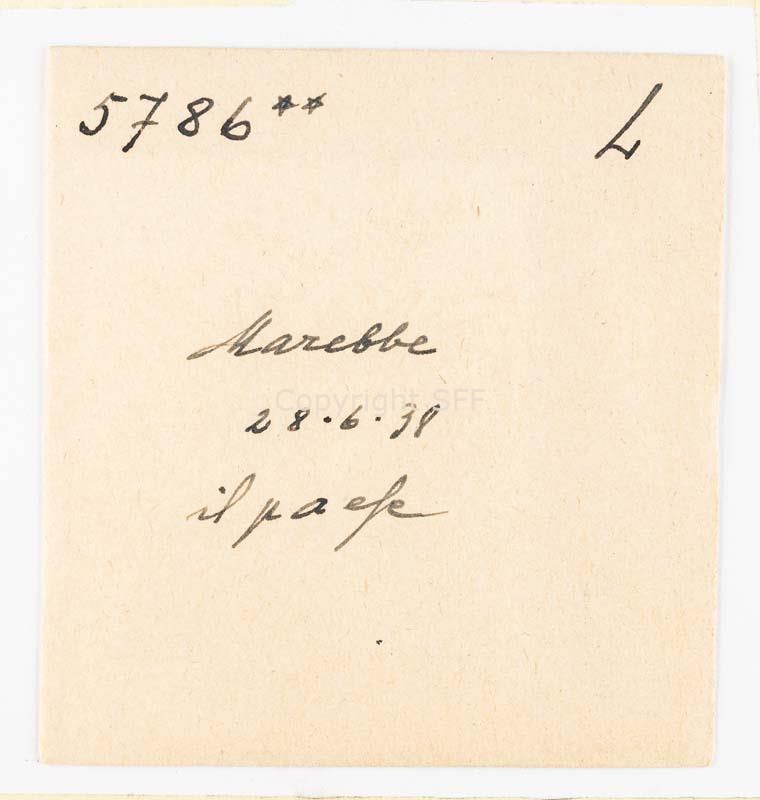 5786** L
Marebbe
Copyright SFF
28.6.38
il paese